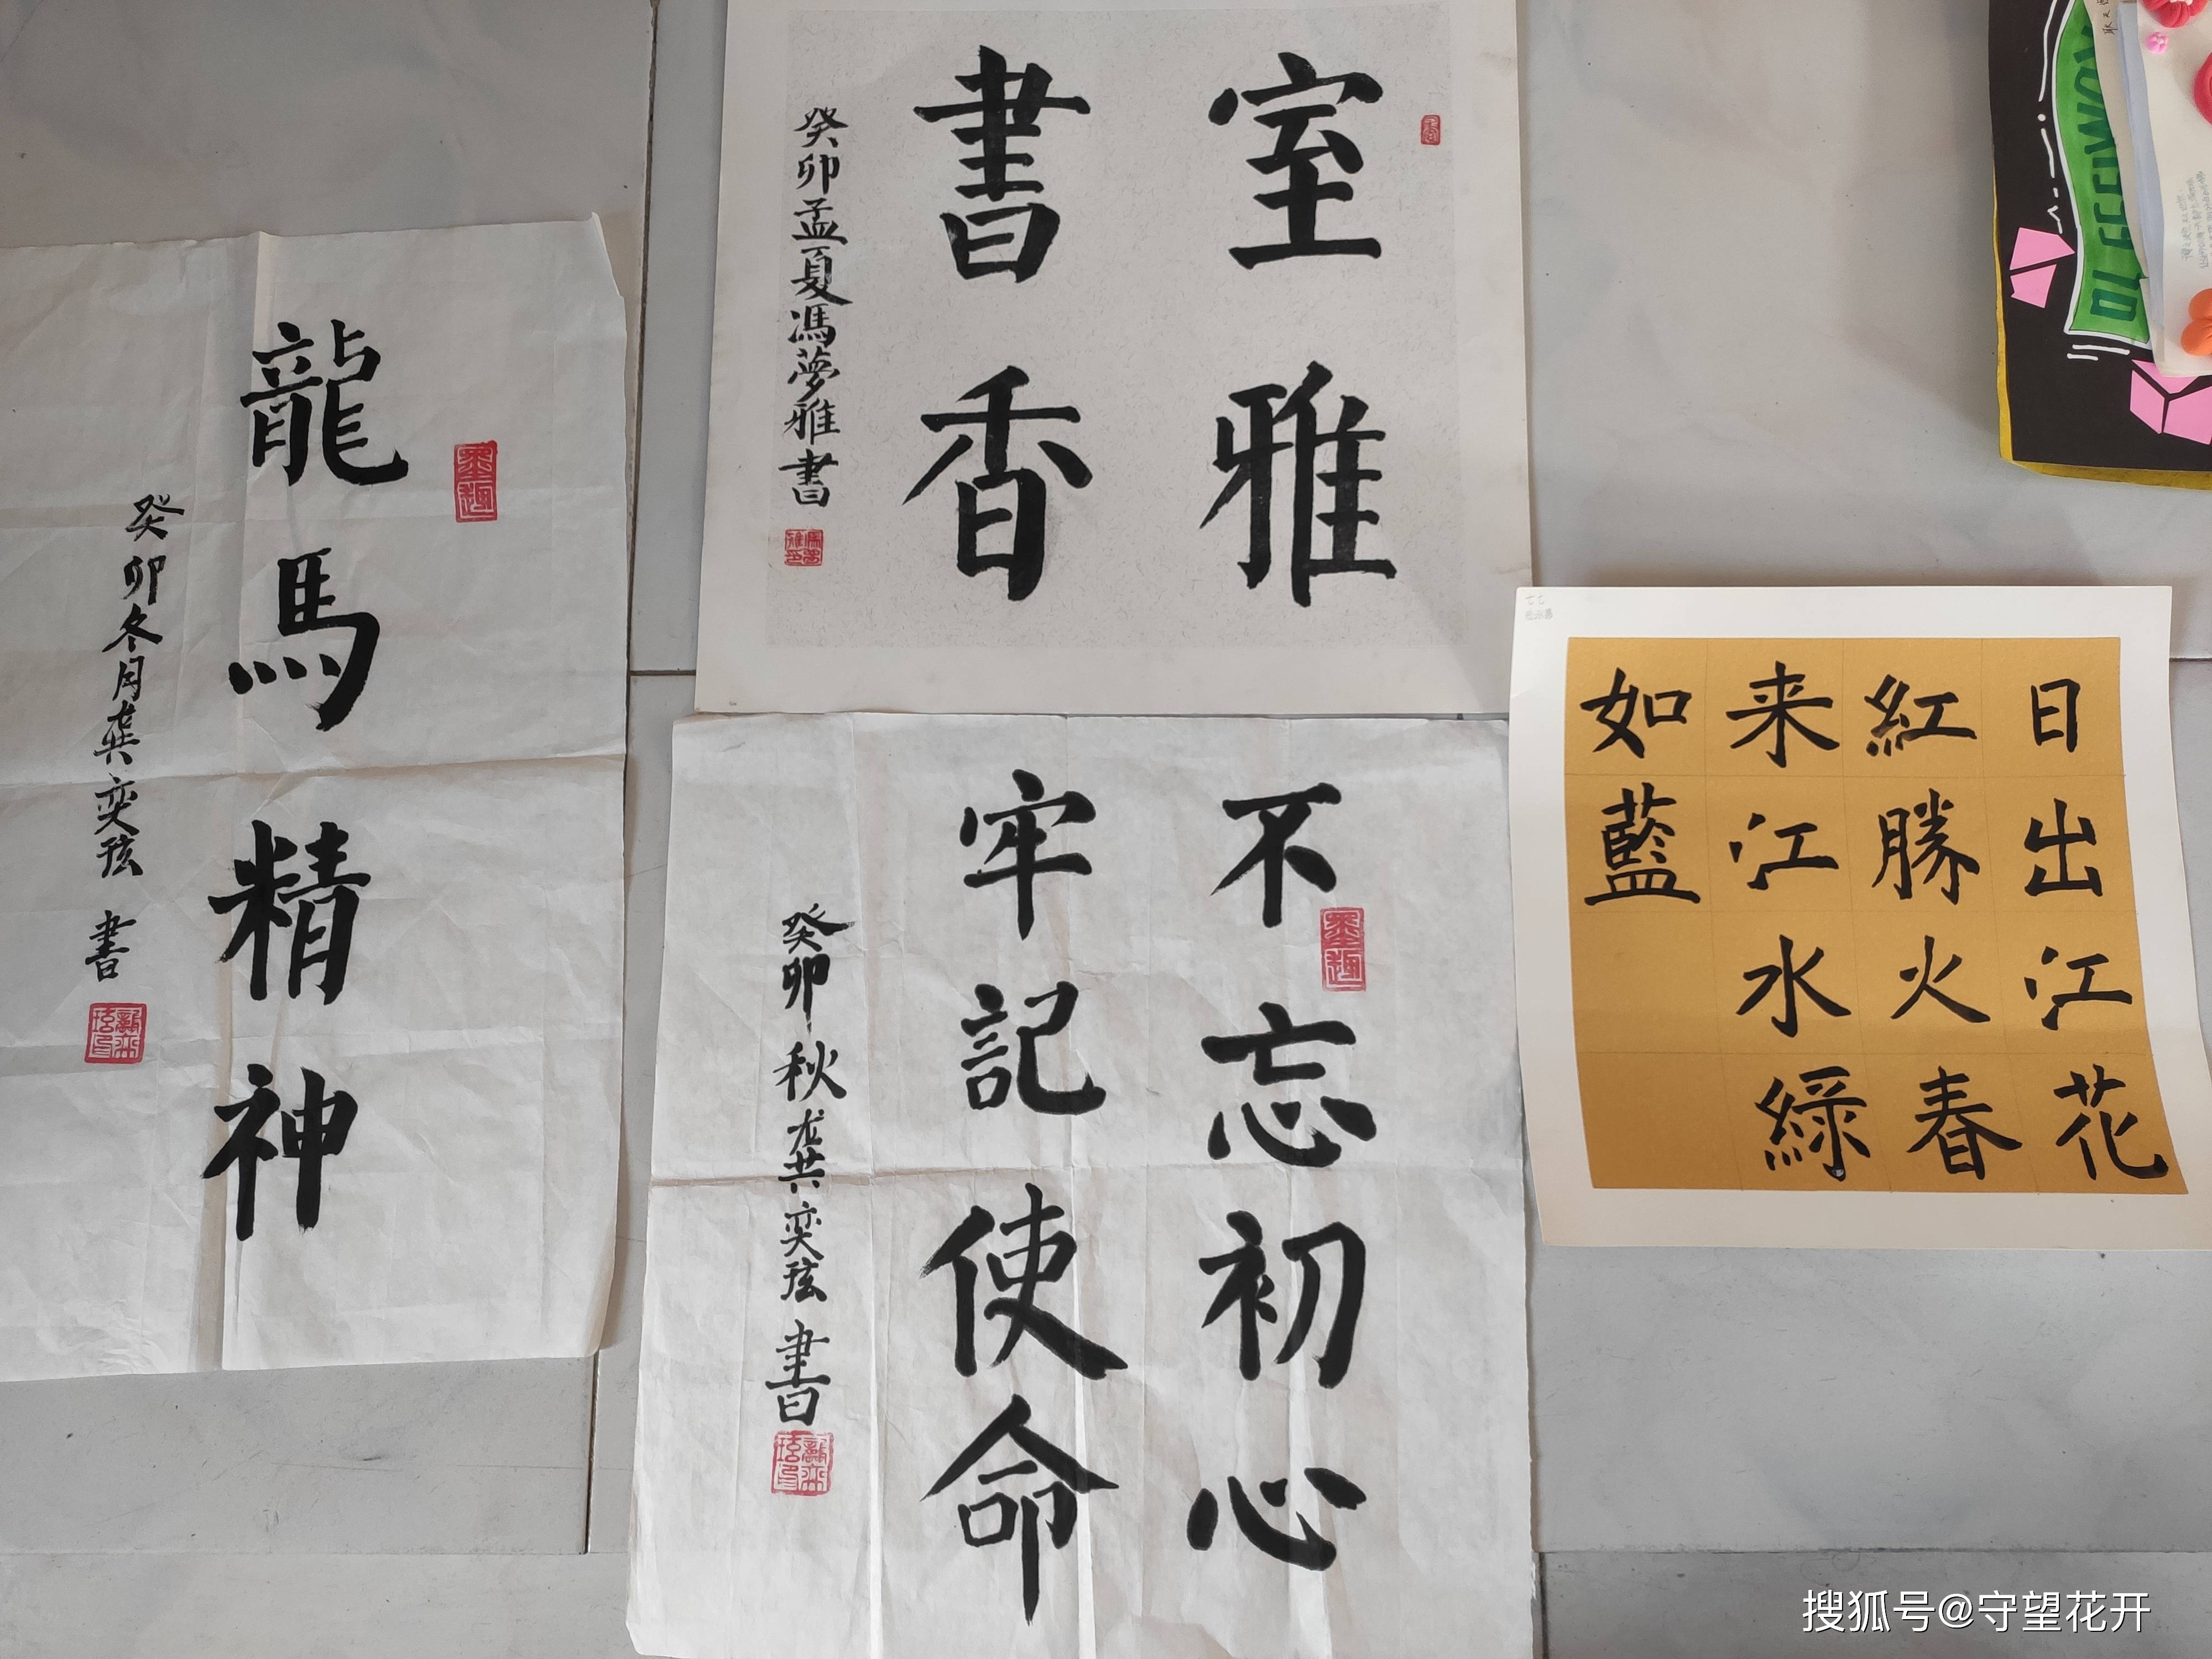 龍馬精神
癸卯冬月龔奕玹書
室雅
書香
癸卯孟夏馮夢雅書
不忘初心
牢記使命
癸卯秋龔奕玹書
日出江花
紅勝火春
来江水綠
如藍
搜狐号@守望花开